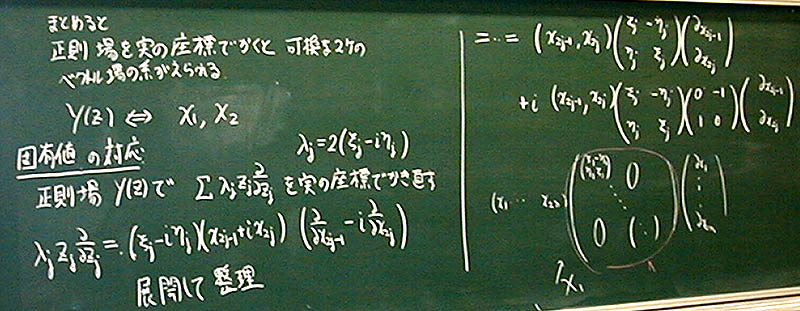 まとめると
正則場を実の座標でかくと 可換な2ケの
ベクトル場の系がえられる
Y(z) ⇔ X1, X2
固有値 の対応
λj=2(ξj-iηj)
正則場 Y(z)で Σ λj zj ∂/∂zj を実の座標でかき直す
λj zj ∂/∂zj = (ξj-iηj)(x2j-1+ix2j) (∂/∂x2j-1 - i ∂/∂x2j)
展開して 整理
=‥= (x2j-1, x2j) (ξj -ηj
ηj ξj) (∂x2j-1
∂x2j)
+i (x2j-1, x2j) (ξj -ηj
ηj ξj) (0 -1
1 0) (∂x2j-1
∂x2j)
(x1 ⋯
0
0
∂x1
X1